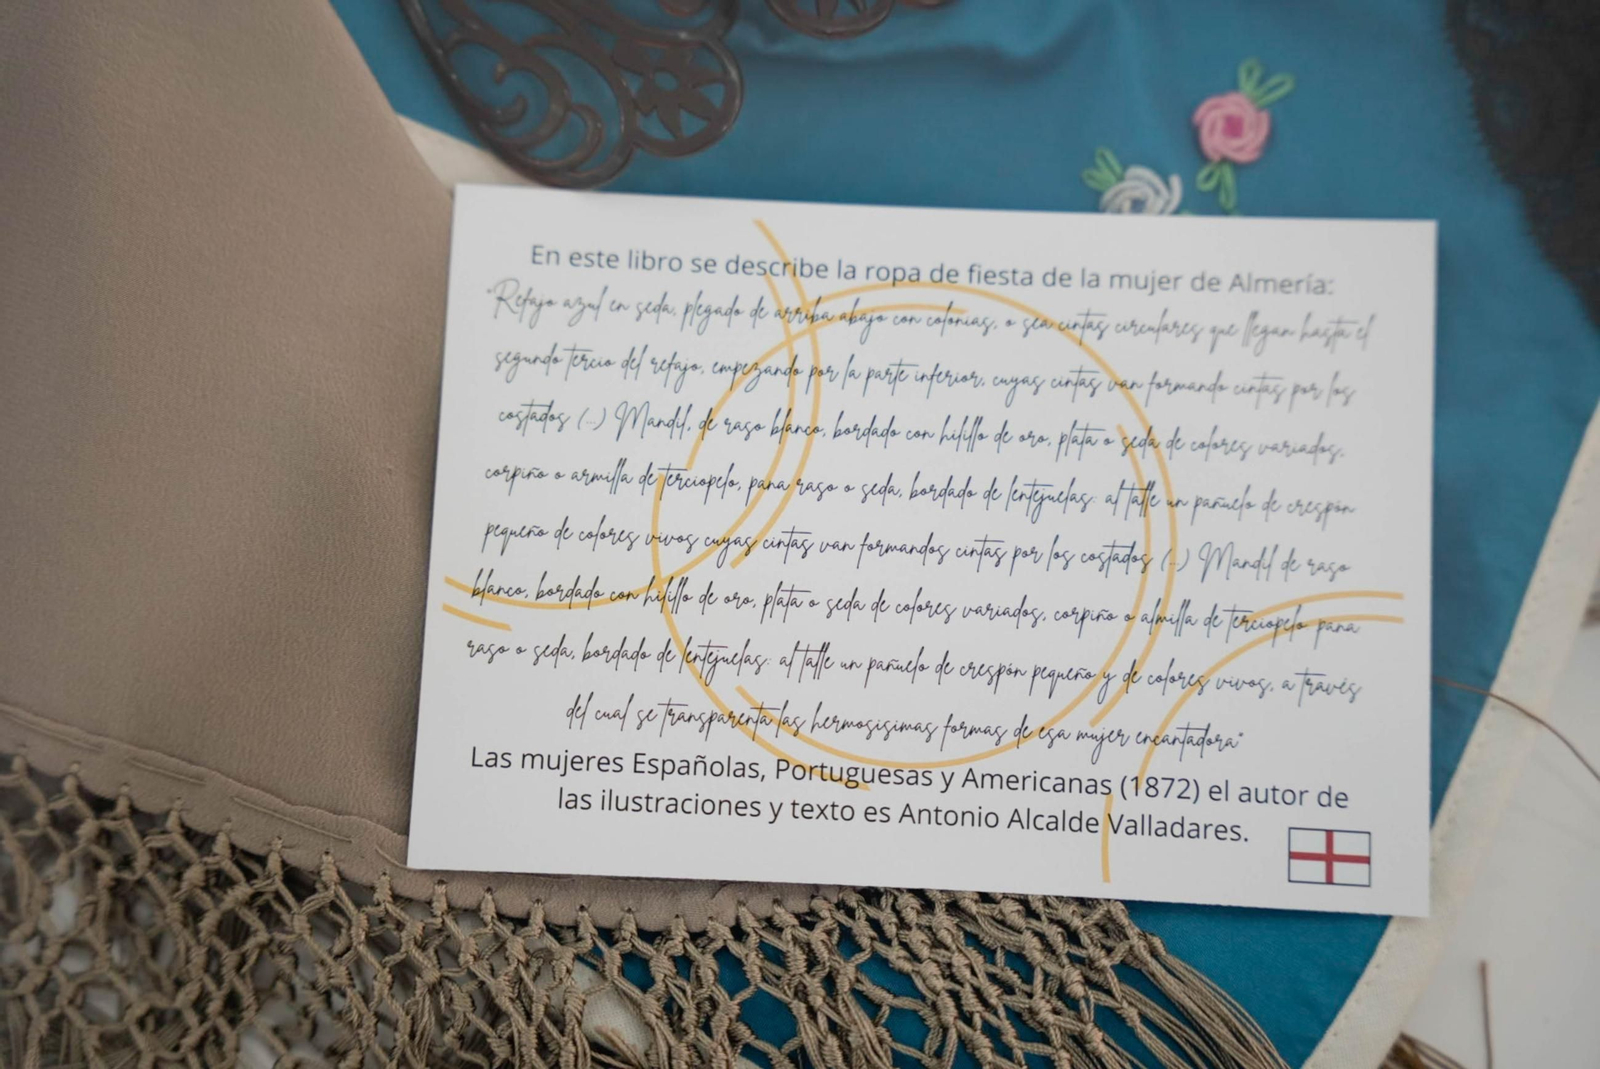 En este libro se describe la ropa de fiesta de la mujer de Almería:
"Refajo azul en seda, plegado de arriba abajo con colonias, o sea cintas circulares que llegan hasta el
segundo tercio del refajo, empezando por la parte inferior, cuyas cintas van formando cintas por los
costados (...) Mandil, de raso blanco, bordado con hilillo de oro, plata o seda de colores variados,
corpiño o armilla de terciopelo, pana raso o seda, bordado de lentejuelas: al talle un pañuelo de crespón
pequeño de colores vivos cuyas cintas van formandos cintas por los costados (...) Mandil de raso
blanco, bordado con hilillo de oro, plata o seda de colores variados, corpiño o almilla de terciopelo pana
raso o seda, bordado de lentejuelas: al talle un pañuelo de crespón pequeño y de colores vivos, a través
del cual se transparenta las hermosisimas formas de esa mujer encantadora"
Las mujeres Españolas, Portuguesas y Americanas (1872) el autor de
las ilustraciones y texto es Antonio Alcalde Valladares.